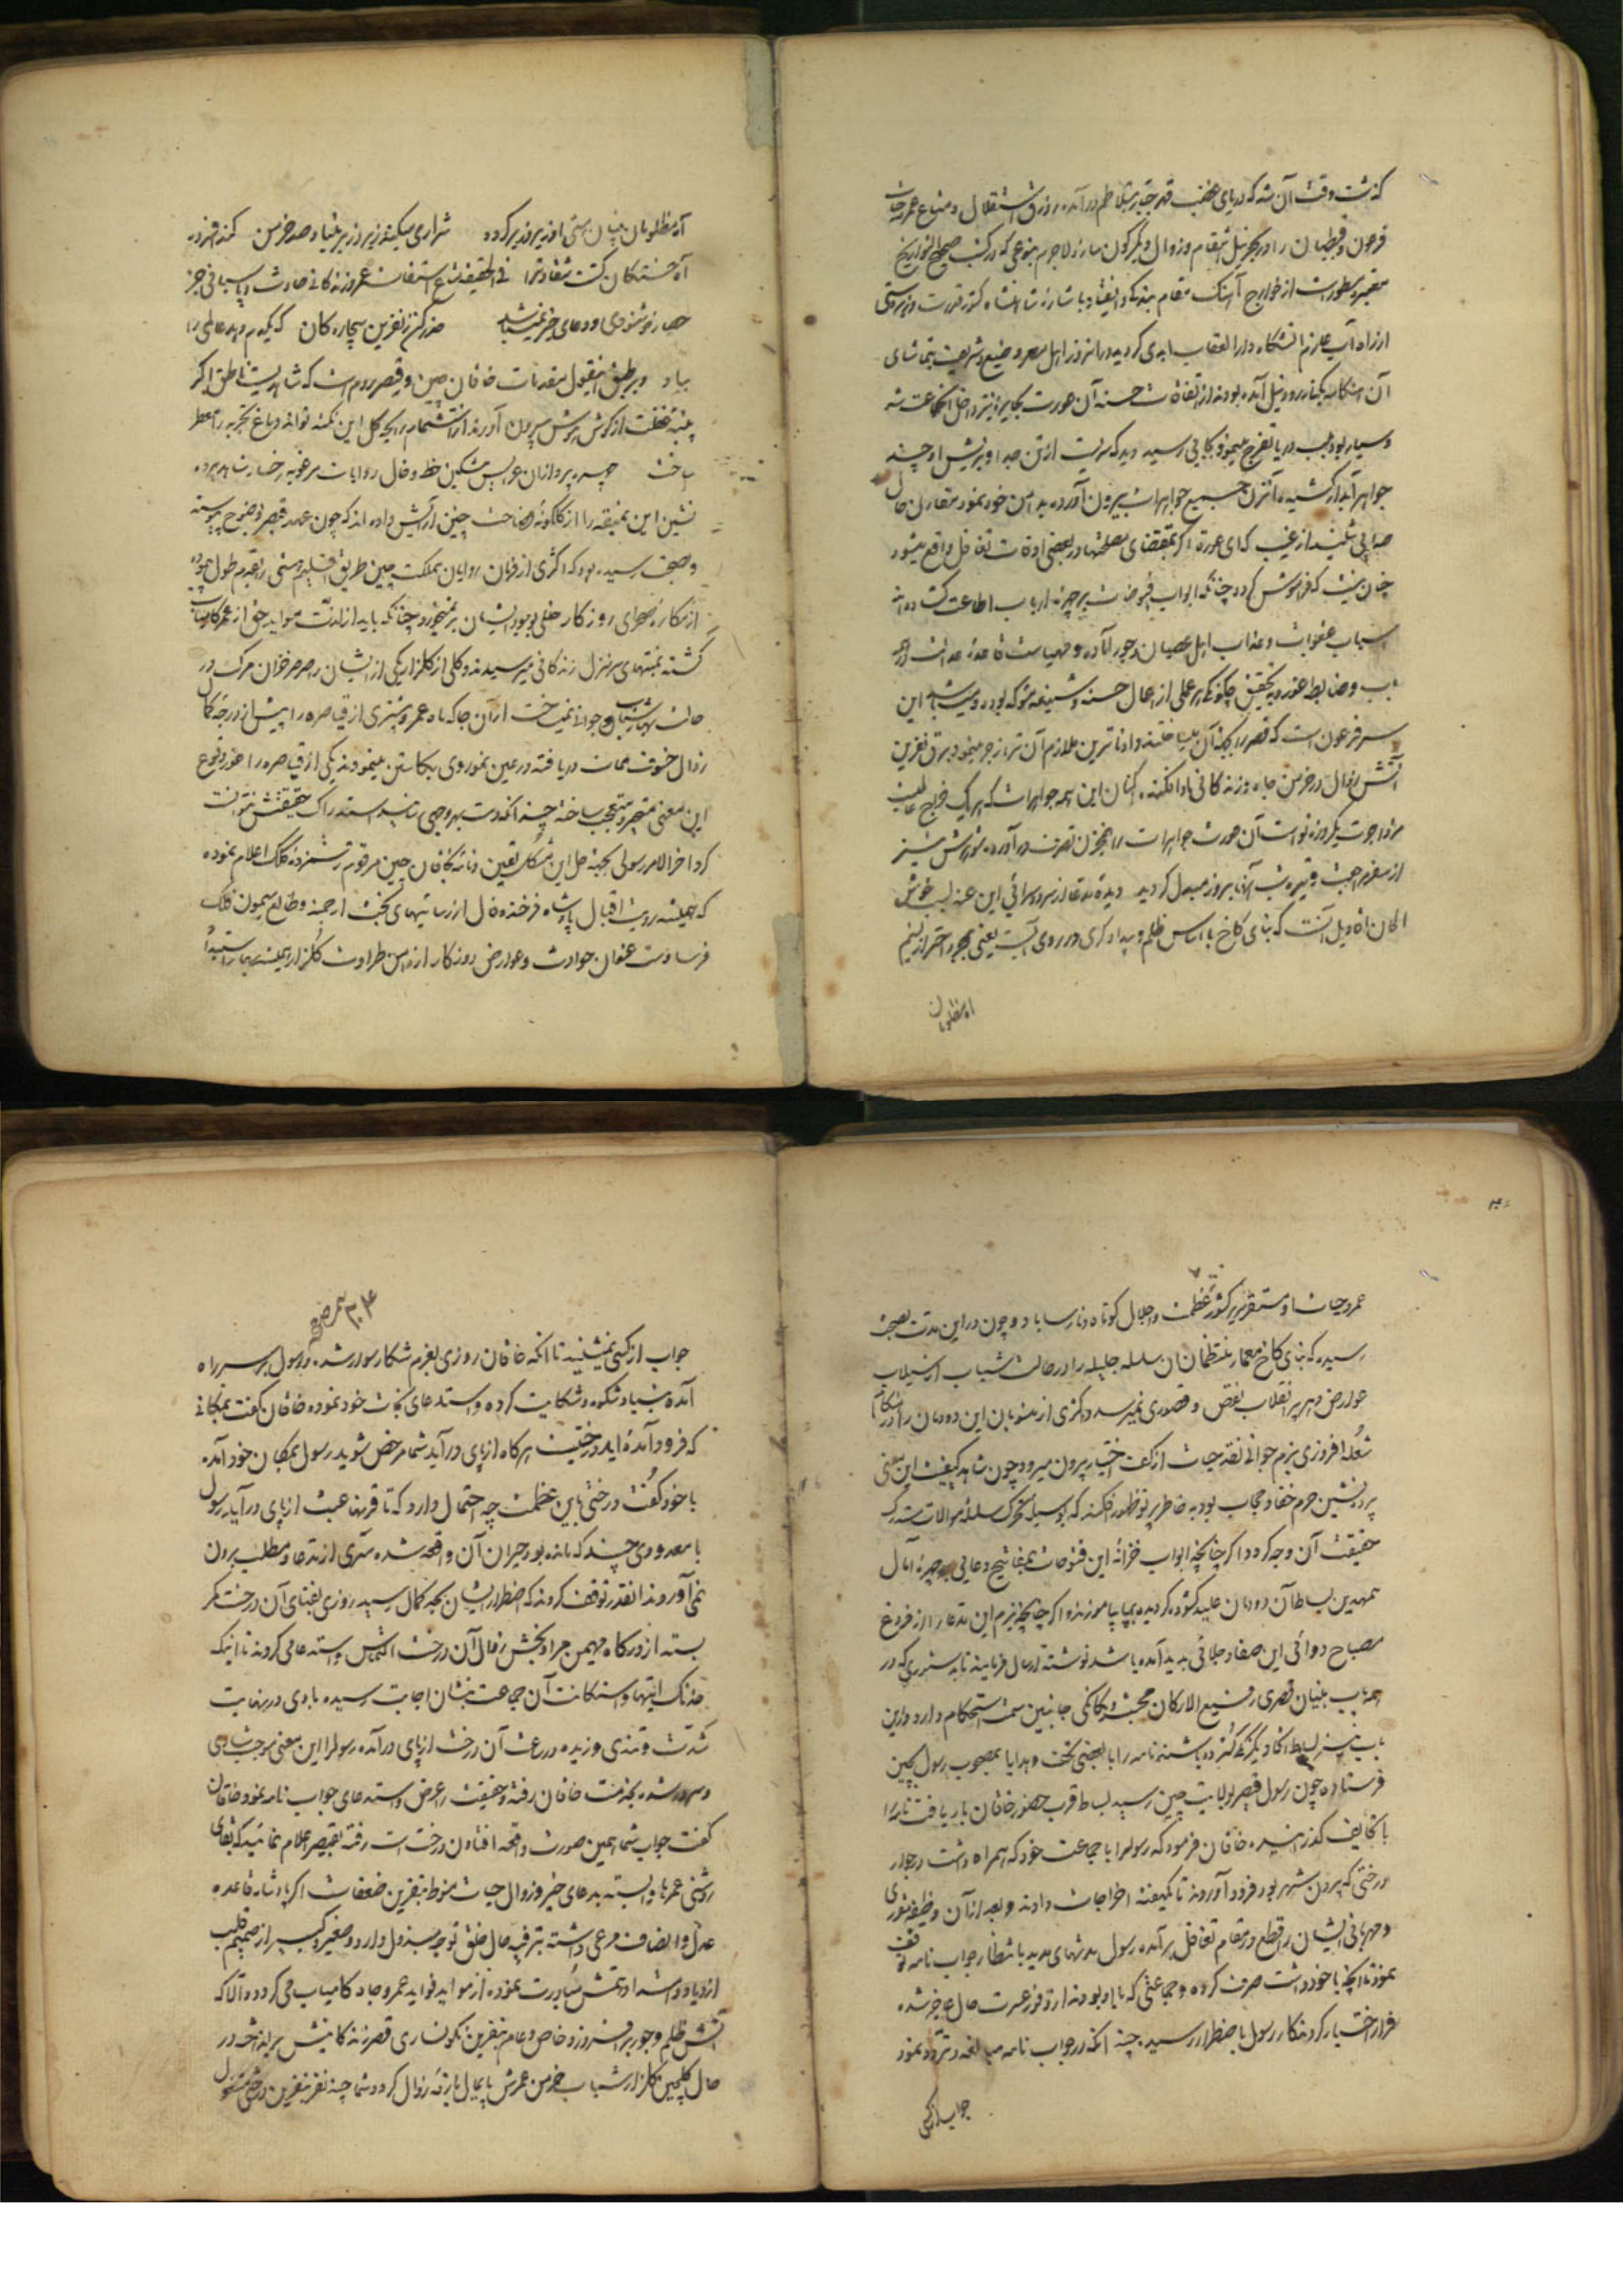 کذشت وقت آن شد که دریای غضب قهر جبار بتلاطم درآمده زورق استقلال و متاع عمر و حیات
فرعون و قبطیان را در بحر نیل انتقام و زوال و نکون سازد لاجرم بنوعی که در کتب صحیح التواریخ
مسطور است از خوارج آهنک مقام بندکی و انقیاد با شاره شاهنشاه کشور قدرت و زبردستی
از راه آب عازم آتشکاه دارالعقاب ابدی کردید و در انروز اهل مصر وضیع و شریف بتماشای
آن بکنار رود نیل آمده بودند از اتفاقات حسنه آن عورت بیچاره نیز داخل آن جماعت شده
و سیاربود لب دریا تفرج مینمود بجایی رسید دید که سریست از تن جدا و بریش او چند
جواهر آبدار کشیده آنزن جمیع جواهرات بیرون آورده بدامن خود نمود مقارن حال
صدایی شنید از غیب که ای عورة اکر بمقتضای مصلحتها در بعضی اوقات تغافل واقع میشود
چنان نیست که فراموش کرده چنانکه ابواب فیوضات بر چهره ارباب اطاعت کشاده اند
اسباب عقوبات و عذاب اهل عصیان و جور آماده و مهیاست
باب و ضابطه عذر و تحقیق چکونکی هر عملی از اعمال حسنه و شنیعه
سر فرعون است که قصر را
آتش زوال در خرمن جاه و زندکانی او افکنده اکنان این همه جواهرات که هر یک خراج عالمیست
مزد اجرت یکروزه تو است آن عورت جواهرات را بمخزن تصرف درآورده شورش نیز
از سفر مراجعت و تیره شب آنها بروز مبدل کردید دیده مدعا از سرود سرائی این عندلیب خوش
الحان اه دیل آنست که بنای کاخ با اساس ظلم و بیداد کری در روی آبست یعنی بمجرد احتراز نسیم
اه مظلومان
آه مظلومان بنیان هستی او زیر و زبر کردد شراری میکند زیر و زبر بنیاد صد خرمن کند افزوده
آه خستکان کشت شقاوترا فی الحقیقة متاع استقامت عمر و زندکانی حادث و پاسبانی جز
حصار خوشنودی و دعای خیر نمیباشد حذر کن ز نفرین بیچاره کان که یکدم دهد عالمی را
بباد و بر طبق اینقول مقدمات خاقان چین و قیصر روم است که شاهدیست ناطق اکر
پنبه غفلت از کوش هوش بیرون آورند از استشمام رایحه کل این نکته توانند دماغ تجربه را معطر
ساخت چهره پردازان عرایس مشکین خط و خال روایات مرغوبه رخسار شاهد پرده
نشین این نمیقه را از کلکونه فصاحت چنین آرایش داده اند که چون عهد قیصر بوضوح پیوسته
و صحت رسیده بود که اکثری از فرمان روایان مملکت چین طریق اقلیم هستی را بقدم طول
از مکاره صحرای روزکار خللی بوجود ایشان بر نمیخورد چنانکه باید از لذت مواید حق از عمر کامیاب
کشته بمنتهای سر منزل زندکانی میرسیدند و کلی از کلزار یکی از ایشان را صرصر خزان مرک در
حالت بهار شباب و جوانی نمیساخت از آن جا که ماه عمر و مشتری از قیاصره را پیش از درجه کمال
زوال خسوف ممات دریافته در عین نمو روی بکاستن مینمودند یکی از قیاصره را خود وقوع
این معنی متحیر و متعجب ساخته چند آنکه دست بهر وجهی نتایند استدراک حقیقتش نتوانست
کرد اخر الامر رسولی بجهة حل این مشکل تعین و نامه بخاقان چین مرقوم نموده کلک اعلام نموده
که همیشه رویت اقبال پادشاه فرخنده فال از رسانیهای بخت ارجمند و طالع میمون فلک
فرسا دست عنوان حوادث و عوارض روزکار از دامن طراوت کلزار همیشه بهار
عمر و حیات او مستقر سریر کشور عظمت و جلال کوتاه و نارسا باد و چون در این مدت بصحت
رسیده که بنای کاخ معمار منتظمان آن سلسله جلیله را در حالت شباب از سیلاب
عوارض دهر پر انقلاب نقص و قصوری نمیرسد و اکثری از منسوبان این دودمان را در هنکام
شعله افروزی بزم جوانی نقد حیات از کف اختیار بیرون میرود چون شاهد کیفیت این معنی
پرده نشین حرم خفا و حجاب بود به خاطر پرتو ظهور افکند که بوسیله محرک سلسله موالات
حقیقت آن وجه کردد اکر چنانچه ابواب خزانه این فتوحات بمفاتیح دعایی بر چهره آمال
ممهدین بساط آن دودمان علیه کشوده کردیده بما بیاموزند و اکر چنانچه بزم این مدعا را از فروغ
مصباح دوائی این صفا و جلائی پدید آمده باشد نوشته ارسال فرمایند تا بدستوری که در
هر باب بنیان قصری رفیع الارکان محبت و یکانکی جانبین سمت استحکام دارد در این
باب نیز بساط اتحاد یکرنکی کسترده باشند نامه را با بعضی تحف و هدایا بمصحوب رسول بچین
فرستاده چون رسول قیصر بولایت چین رسید بساط قرب حضور خاقان باریافت نامه را
با تحایف کذرانیده خاقان فرمود که رسولرا با جماعت خود که همراه داشت در جوار
درختی که بیرون شهر بود فرود آوردند تا یکهفته اخراجات دادند و بعد از آن وظیفه
و مهربانی ایشان را قطع و در مقام تغافل برآمده رسول مدتهای مدید با نتظار جواب نامه توقف
نموده آنچه با خود داشت صرف کرده و جماعتی که با او بودند از وفور عسرت حال عاجز شده
فرار اختیار کردند کار رسول باضطرار رسید چند آنکه در جواب نامه مبالغه و تردد نمود
جواب از کسی
جواب از کسی نمیشنید تا آنکه خاقان روزی بعزم شکار سوار شده رسول بر سر راه
آمده بنیاد شکوه و شکایت کرده و استدعای نجات خود نموده خاقان کفت بمکانی
که فرود آمده اید درختیست هرکاه از پای درآید شما مرخص شوید رسول بمکان خود آمده
با خود کفت درختی باین عظمت چه احتمال دارد که تا قرنها عبث از پای درآید رسول
با معدودی چند که مانده بود حیران آن واقعه شده سری از مدعا و مطلب بیرون
نمی آوردند آنقدر توقف کردند که اضطرار ایشان بحد کمال رسید روزی بفنای آن درخت کمر
بسته از درکاه مهیمن مراد بخش زوال آن درخت التماس و استدعا می کردند تا اینکه
خدنک ابتهال و استکانت آن جماعت بنشان اجابت رسیده بادی در نهایت
شدت و تندی وزیده در ساعت آن درخت از پای درآمده رسولرا این معنی موجب شادی
و سرور شده بخدمت خاقان رفته و حقیقت را عرض و استدعای جواب نامه نمود خاقان
کفت جواب شما همین صورت واقعه افتادن درخت است رفته بقیصر اعلام نمائید که بقای
روشنی عمر ما وابسته بدعای خیر و زوال حیات منوط بنفرین ضعفاست اکر پادشاه قاعده
عدل و انصاف مرعی داشته بترفیه حال خلق توجه مبذول دارد و صغیر و کبیر از صمیم قلب
ازدیاد و استدامتش مبادرت نموده از مواید فواید عمر و جاه کامیاب می کردد و الا که
آتش ظلم و جور برافروزد و خاص و عام بنفرین نکونساری قصر زندکانیش پردازند در
حال کلچین کلزار شباب خرمن عمرش پایمال بارقه زوال کردد شما چند نفر بنفرین درختی مشغول